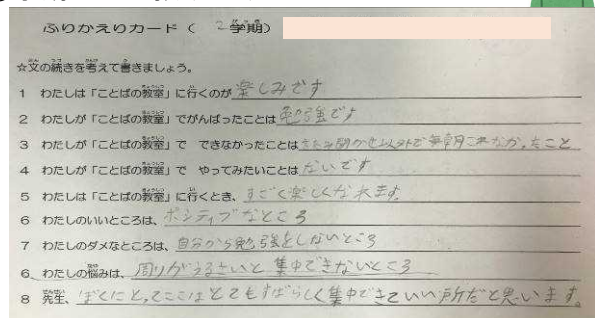 ふりかえりカード( 2学期)
☆文の続きを考えて書きましょう。
1 わたしは「ことばの教室」に行くのが 楽しみです
2 わたしが「ことばの教室」でがんばったことは 勉強です
3 わたしが「ことばの教室」で できなかったことは 以外で 来れなかったこと
4 わたしが「ことばの教室」で やってみたいことは ないです
5 わたしは「ことばの教室」に行くとき、すごく楽しくなれます。
6 わたしのいいところは、ポジティブなところ
7 わたしのダメなところは、自分から勉強をしないところ
6、わたしの悩みは、周りがうるさいと集中できないところ
8 先生、ぼくにとってここはとてもすばらしく集中できていい所だと思います。